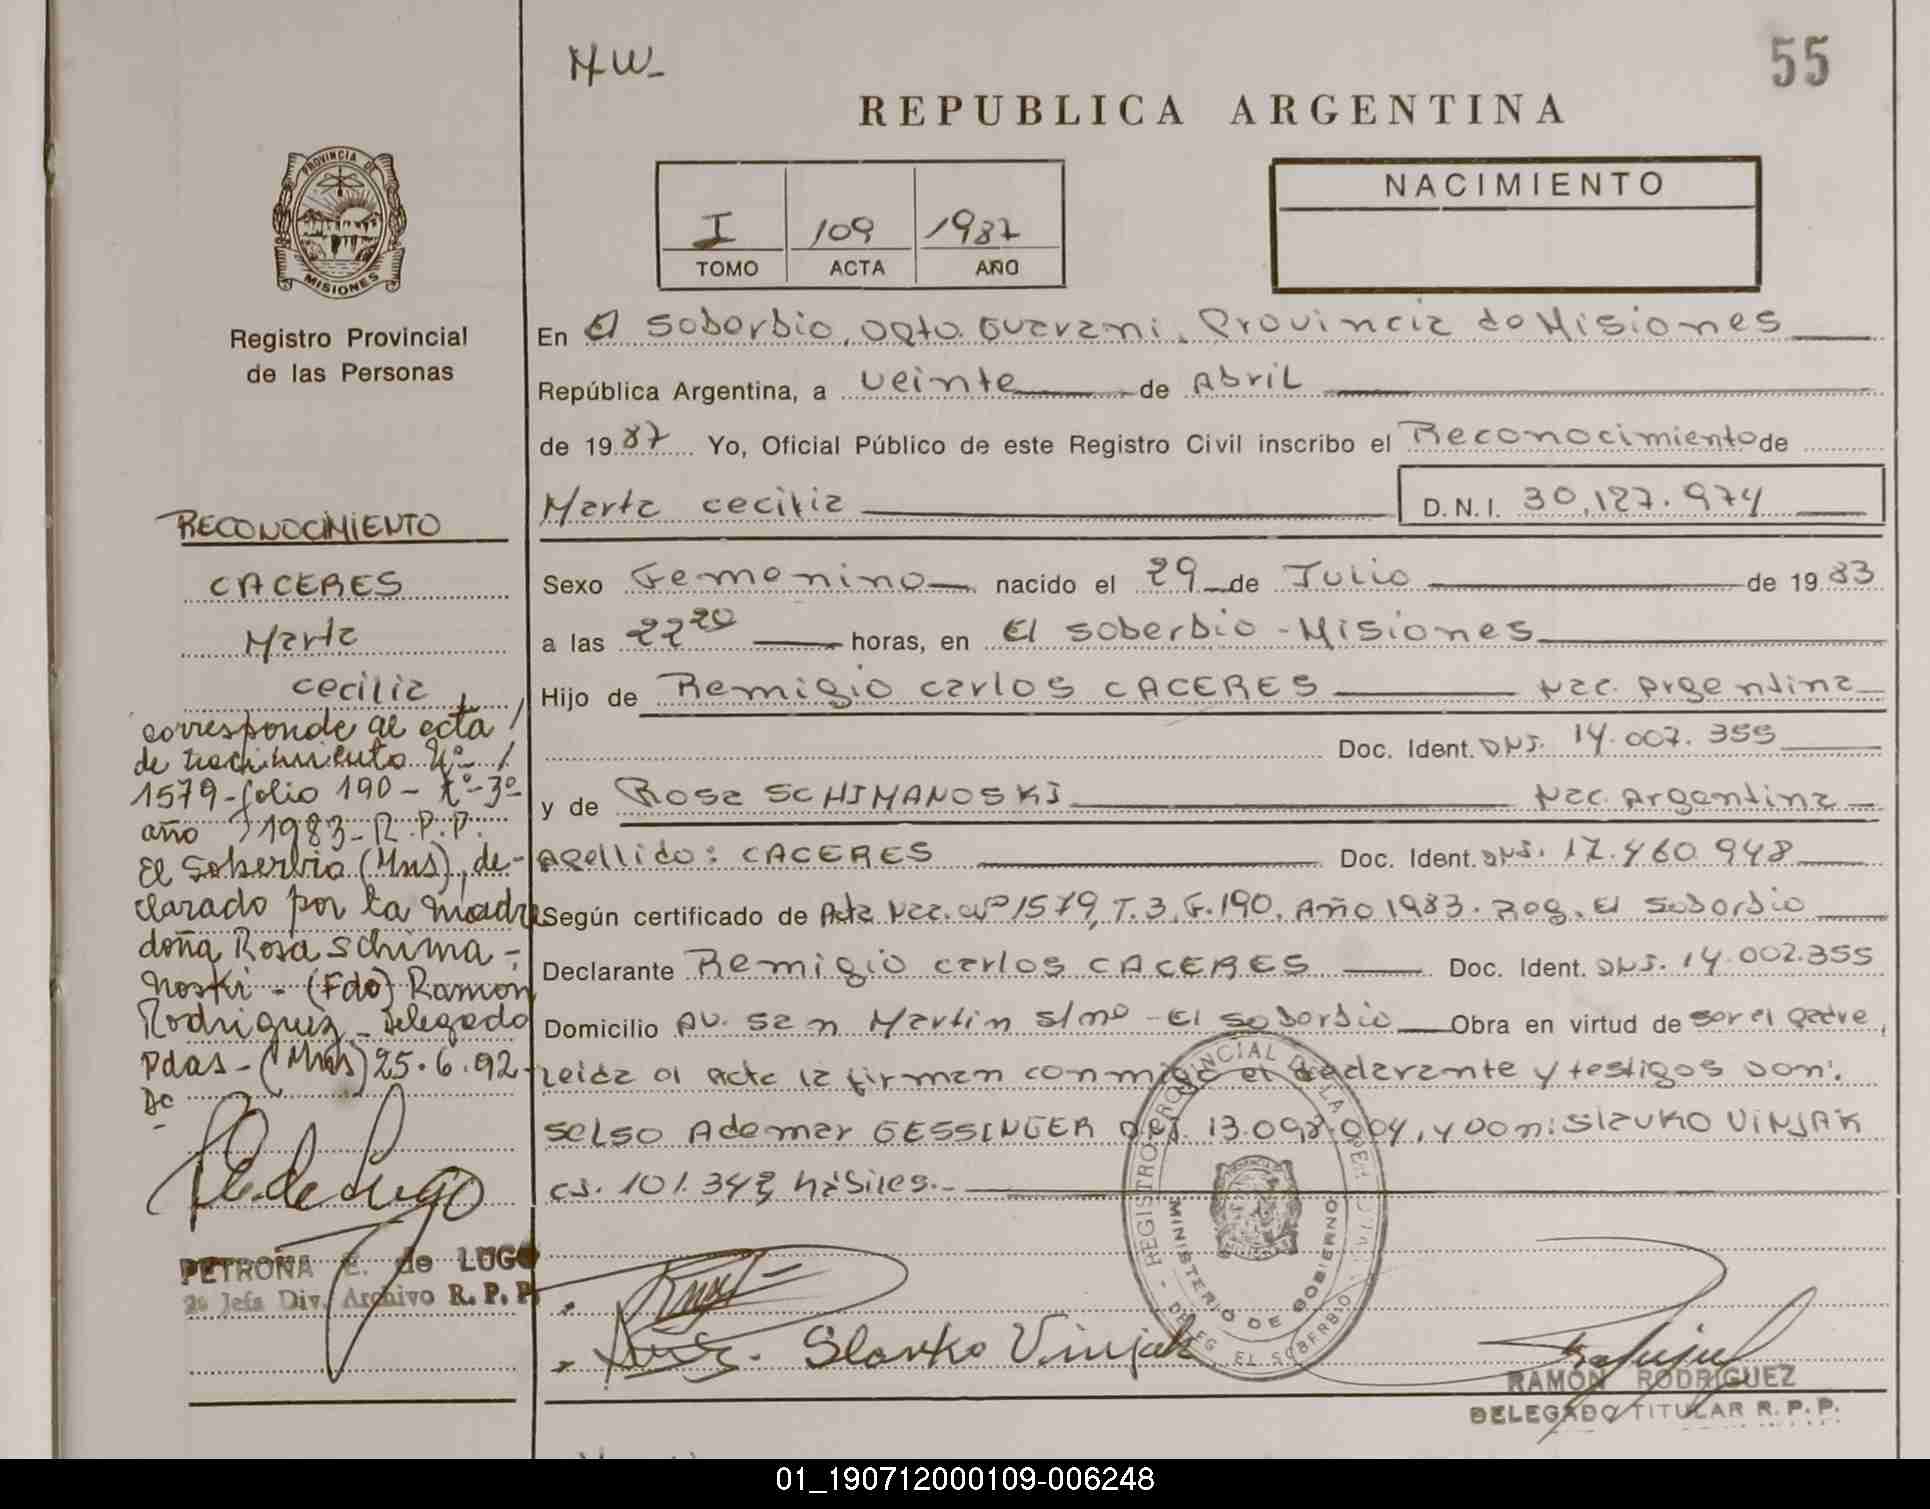 55
REPUBLICA ARGENTINA
PROVINCIA DE
MISIONES
Registro Provincial
de las Personas
I 109 1987
TOMO ACTA AÑO
NACIMIENTO
En El Soberbio, Dpto. Guarani, Provincia de Misiones
República Argentina, a veinte de Abril
de 1987 Yo, Oficial Público de este Registro Civil inscribo el Reconocimiento de
Marta Cecilia D.N.I. 30.127.974
Sexo Femenino nacido el 29 de Julio de 1983
a las 22 20 horas, en El Soberbio - Misiones
Hijo de Remigio Carlos CACERES Nac. Argentina
Doc. Ident. DNI. 14.002.355
y de Rosa SCHIMANOSKI Nac. Argentina
Apellido: CACERES Doc. Ident. DNI. 17.460.948
Según certificado de Acta Nac. Nº 1579, T. 3, F. 190, Año 1983. Reg. El Soberbio
Declarante Remigio Carlos CACERES Doc. Ident. DNI. 14.002.355
Domicilio Av. San Martin s/nº - El Soberbio Obra en virtud de ser el padre,
Leida el Acta la firman conmigo el declarante y testigos Don:
Selso Ademar GESSINGER DNI. 13.098.004, y Don: Slavko VINJAK
CI. 101.343 hábiles.-
RECONOCIMIENTO
CACERES
Marta
Cecilia
corresponde al acta
de nacimiento Nº
1579-folio 190-tº-3º
año 1983-R.P.P.
El Soberbio (Mns), de-
clarado por la madre
doña Rosa Schima-
noski - (Fdo) Ramon
Rodriguez - Delegado
Pdas - (Mns) 25.6.92
PETRONA E. de LUGO
2º Jefa Div. Archivo R. P. P.
REGISTRO PROVINCIAL DE LAS PERSONAS
MINISTERIO DE GOBIERNO
DELEG. EL SOBERBIO
Slavko Vinjak
RAMÓN RODRIGUEZ
DELEGADO TITULAR R. P. P.
01_190712000109-006248